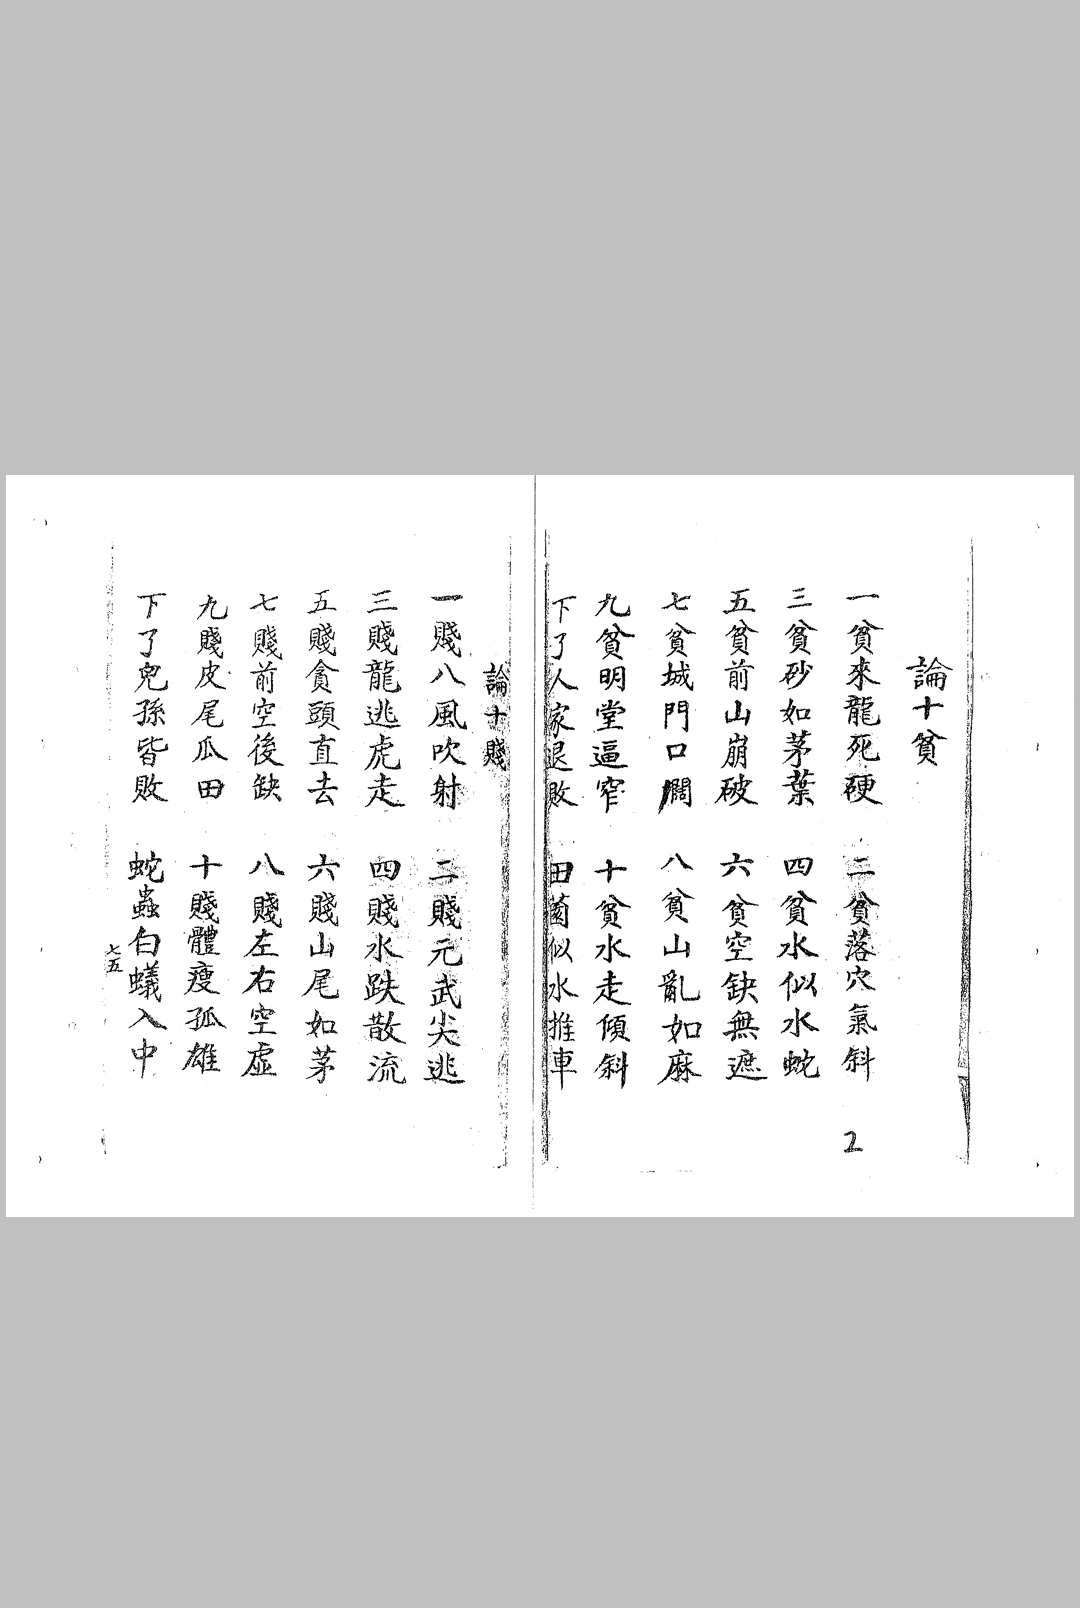 論十貧
一貧來龍死硬 二貧落穴氣斜
三貧砂如茅葉 四貧水似水蛇
五貧前山崩破 六貧空缺無遮
七貧城門口濶 八貧山亂如麻
九貧明堂逼窄 十貧水走傾斜
下了人家退敗 田園似水推車
2
論十賤
一賤八風吹射 二賤元武尖逃
三賤龍逃虎走 四賤水跌散流
五賤貪頭直去 六賤山尾如茅
七賤前空後缺 八賤左右空虛
九賤皮尾瓜田 十賤體瘦孤雄
下了兒孫皆敗 蛇蟲白蟻入中
七五